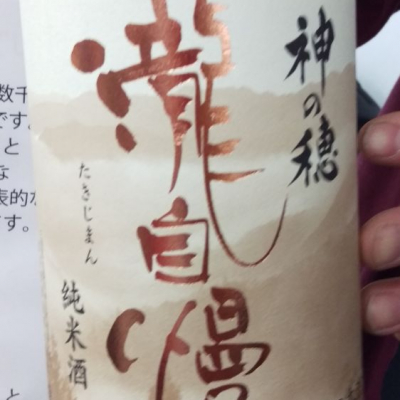 神の穂
瀧自慢
たきじまん
純米酒
数千
です。
と
な
表的な
す。
と